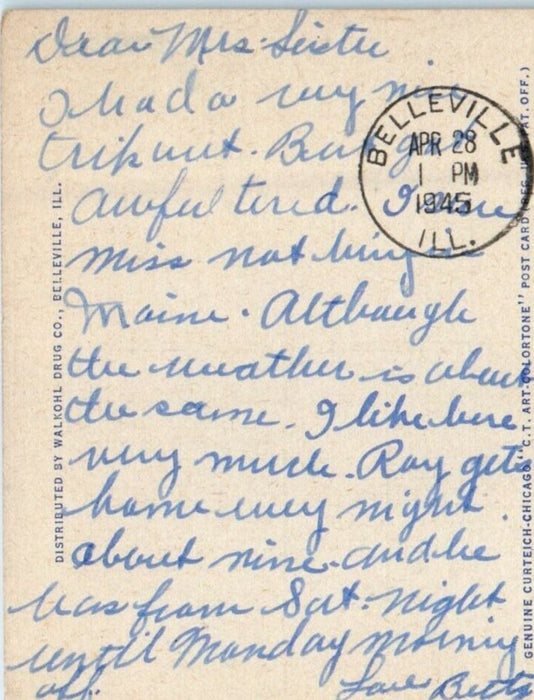 Dear Mrs. Sister
I had a very nice
trip out. But got
awful tired. I
miss nothing in
Maine. Although
the weather is about
the same. I like here
very much. Ray gets
home every night
about nine. and he
has from Sat. night
until Monday morning
off. Love Betty
BELLEVILLE
APR 28
1 PM
1945
ILL.
DISTRIBUTED BY WALKOHL DRUG CO., BELLEVILLE, ILL.
GENUINE CURTEICH-CHICAGO "C.T. ART-COLORTONE" POST CARD (REG. U.S. PAT. OFF.)